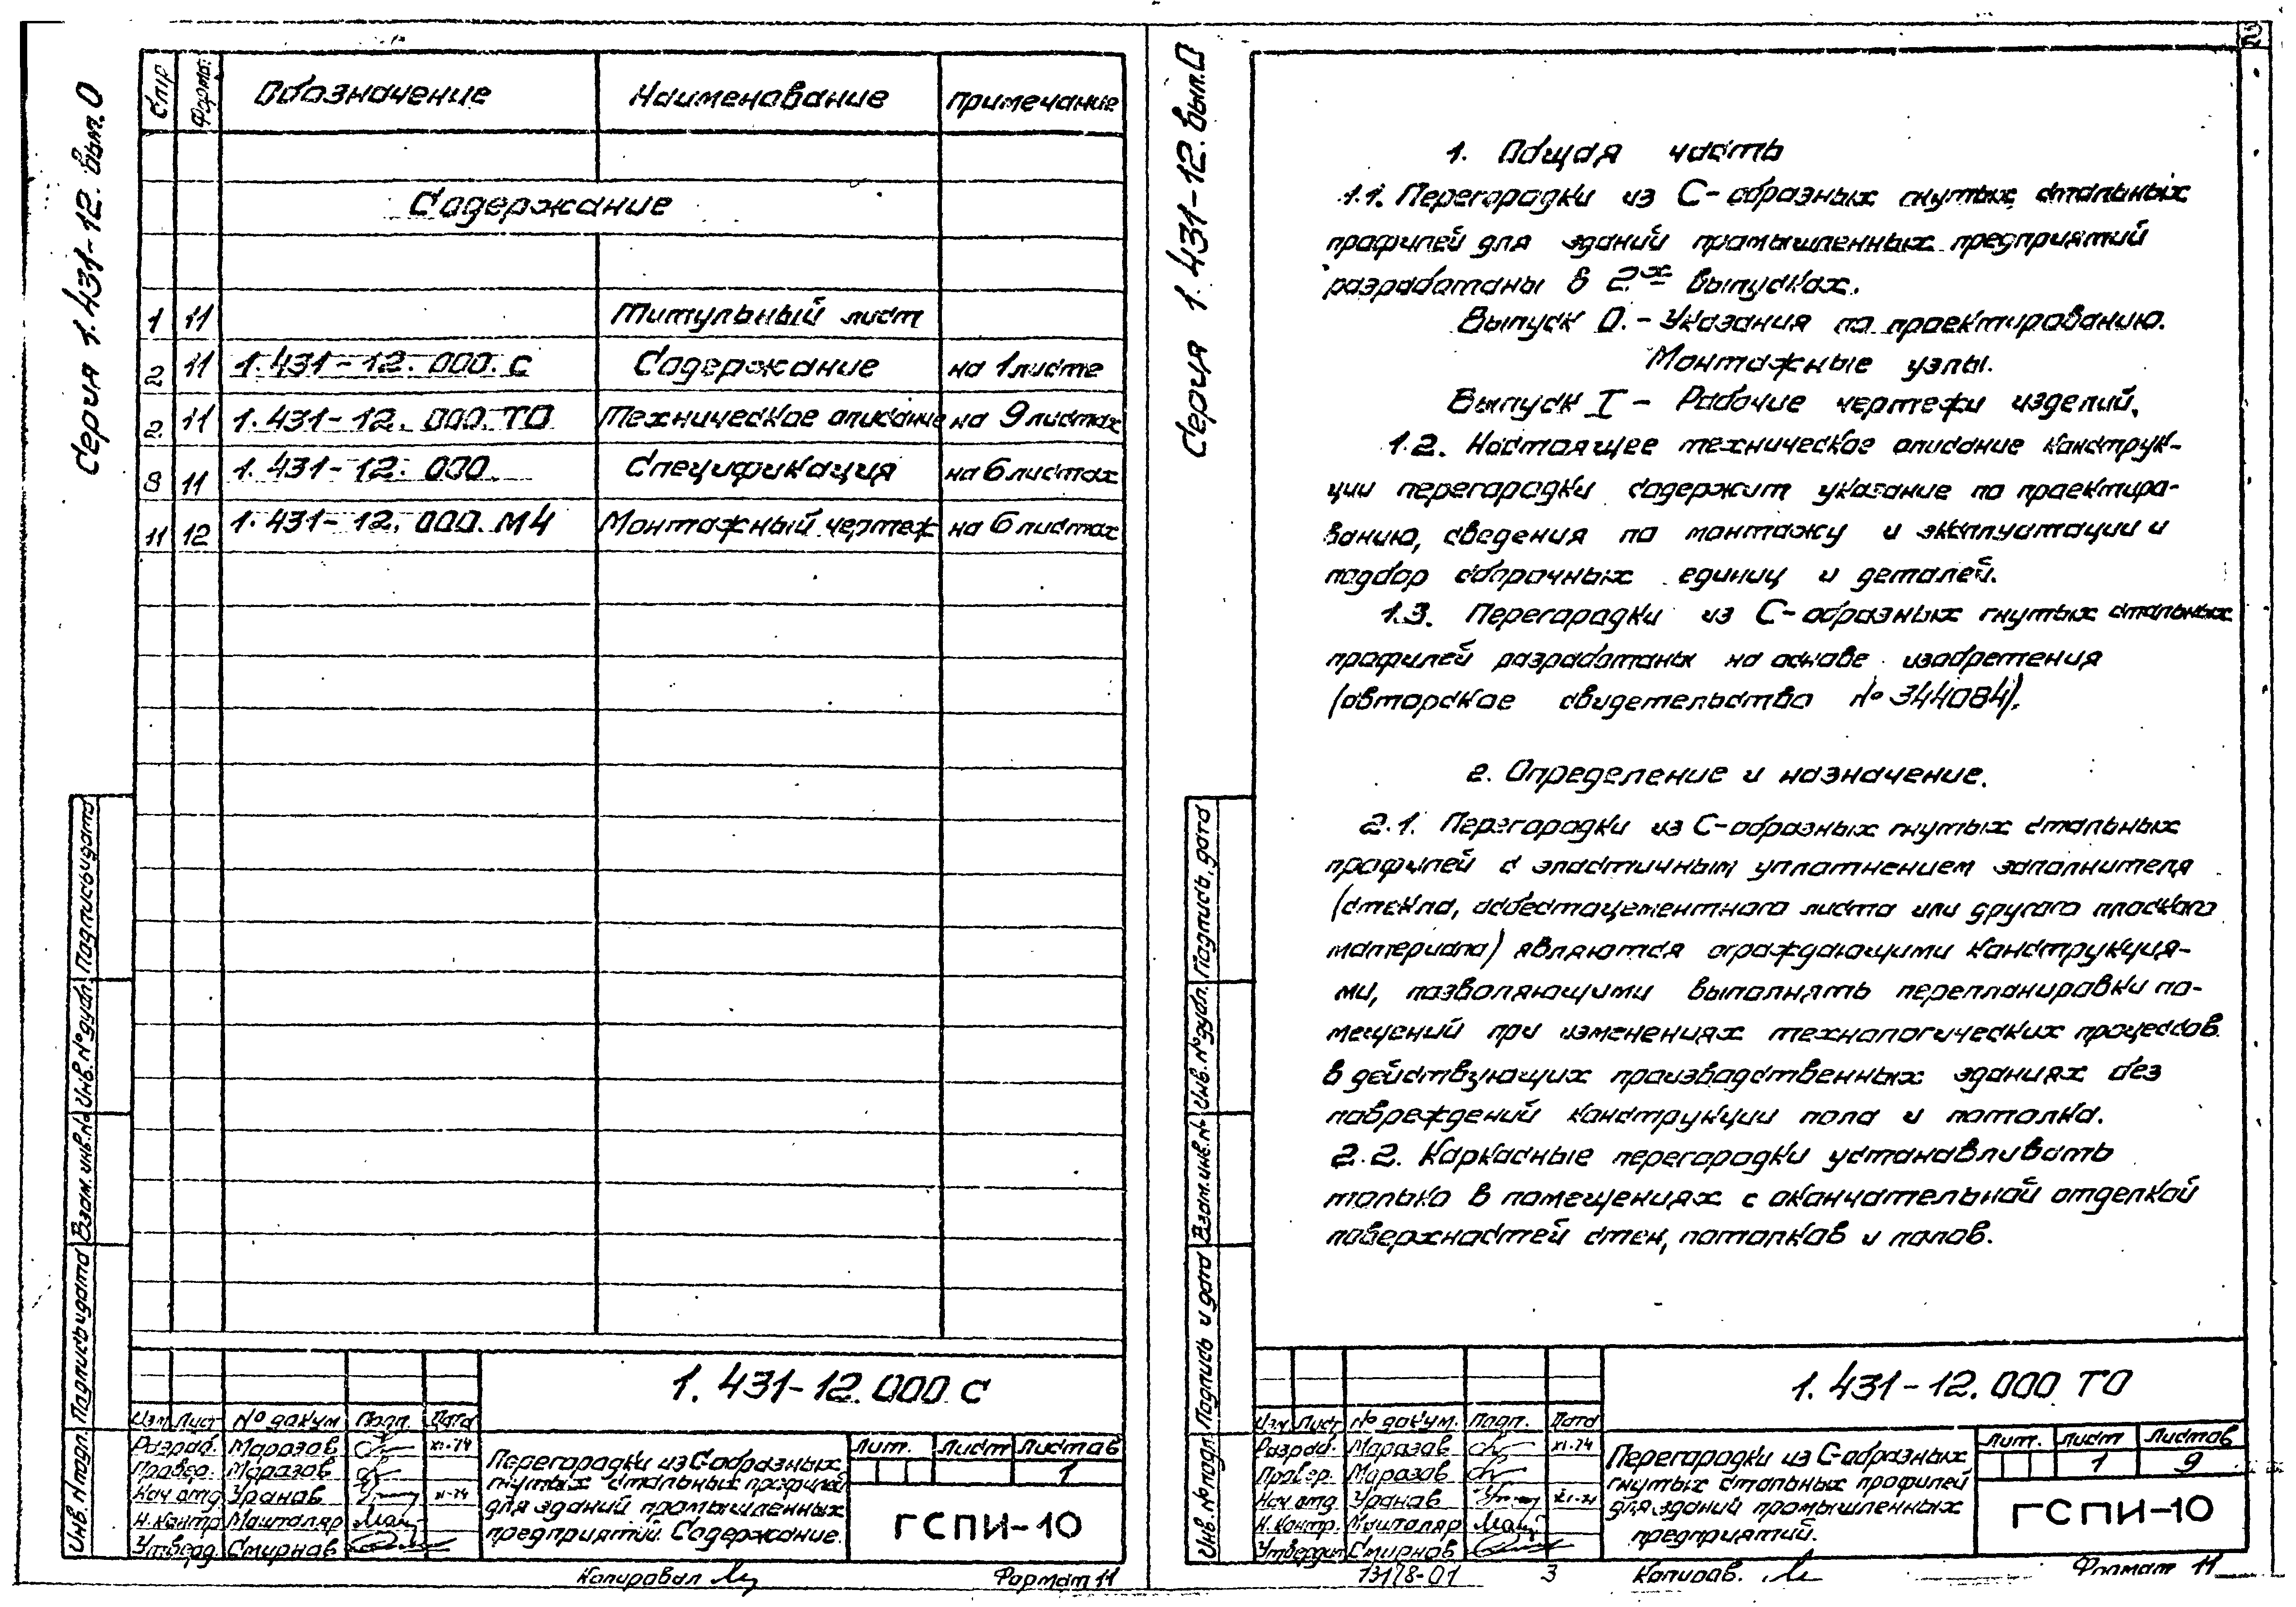 Серия 1.431-12. вып.0
Стр Форма. Обозначение Наименование Примечание
Содержание
1 11 Титульный лист
2 11 1.431-12.000.С Содержание на 1 листе
2 11 1.431-12.000.ТО Техническое описание на 9 листах
8 11 1.431-12.000. Спецификация на 6 листах
11 12 1.431-12.000.М4 Монтажный чертеж на 6 листах
Инв.№подл. Подпись и дата Взам.инв.№ Инв.№дубл. Подпись и дата
1.431-12.000 С
Изм Лист № докум Подп. Дата
Разраб. Марозов XI-74
Провер. Марозов
Нач отд Уранов XI-74
Н.контр Машталяр
Утверд. Смирнов
Перегородки из С-образных
гнутых стальных профилей
для зданий промышленных
предприятий. Содержание.
Лит. Лист Листов
1
ГСПИ-10
Копировал
Формат 11
2
Серия 1.431-12.вып.0
1. Общая часть
1.1. Перегородки из С-образных гнутых стальных
профилей для зданий промышленных предприятий
разработаны в 2-х выпусках.
Выпуск 0. - Указания по проектированию.
Монтажные узлы.
Выпуск I - Рабочие чертежи изделий.
1.2. Настоящее техническое описание конструк-
ции перегородки содержит указание по проектиро-
ванию, сведения по монтажу и эксплуатации и
подбор сборочных единиц и деталей.
1.3. Перегородки из С-образных гнутых стальных
профилей разработаны на основе изобретения
(авторское свидетельство № 344084).
2. Определение и назначение.
2.1. Перегородки из С-образных гнутых стальных
профилей с эластичным уплотнением заполнителя
(стекла, асбестоцементного листа или другого плоского
материала) являются ограждающими конструкция-
ми, позволяющими выполнять перепланировки по-
мещений при изменениях технологических процессов
в действующих производственных зданиях без
повреждений конструкции пола и потолка.
2.2. Каркасные перегородки устанавливать
только в помещениях с окончательной отделкой
поверхностей стен, потолков и полов.
Инв.№подл. Подпись и дата Взам.инв.№ Инв.№дубл. Подпись, дата
1.431-12.000 ТО
Изм. Лист № докум. Подп. Дата
Разраб. Марозов XI-74
Провер. Марозов
Нач отд Уранов XI-74
Н.контр. Машталяр
Утвердил Смирнов
Перегородки из С-образных
гнутых стальных профилей
для зданий промышленных
предприятий.
Лит. Лист Листов
1 9
ГСПИ-10
13178-01 3 Копиров.
Формат 11